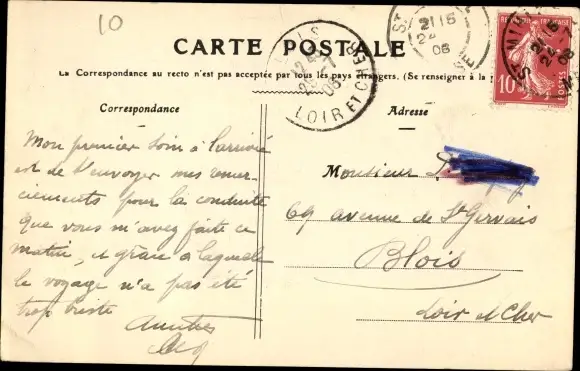 10
CARTE POSTALE
La Correspondance au recto n'est pas acceptée par tous les pays étrangers. (Se renseigner à la
Correspondance
Adresse
Mon premier soin à l'arrivée
est de t'envoyer mes remer-
ciements pour la conduite
que vous m'avez faite ce
matin, et grâce à laquelle
le voyage n'a pas été
trop triste
Monsieur
69 avenue de St Gervais
Blois
Loir et Cher
LOIR ET CHER
21 15
24
06
10
POSTES